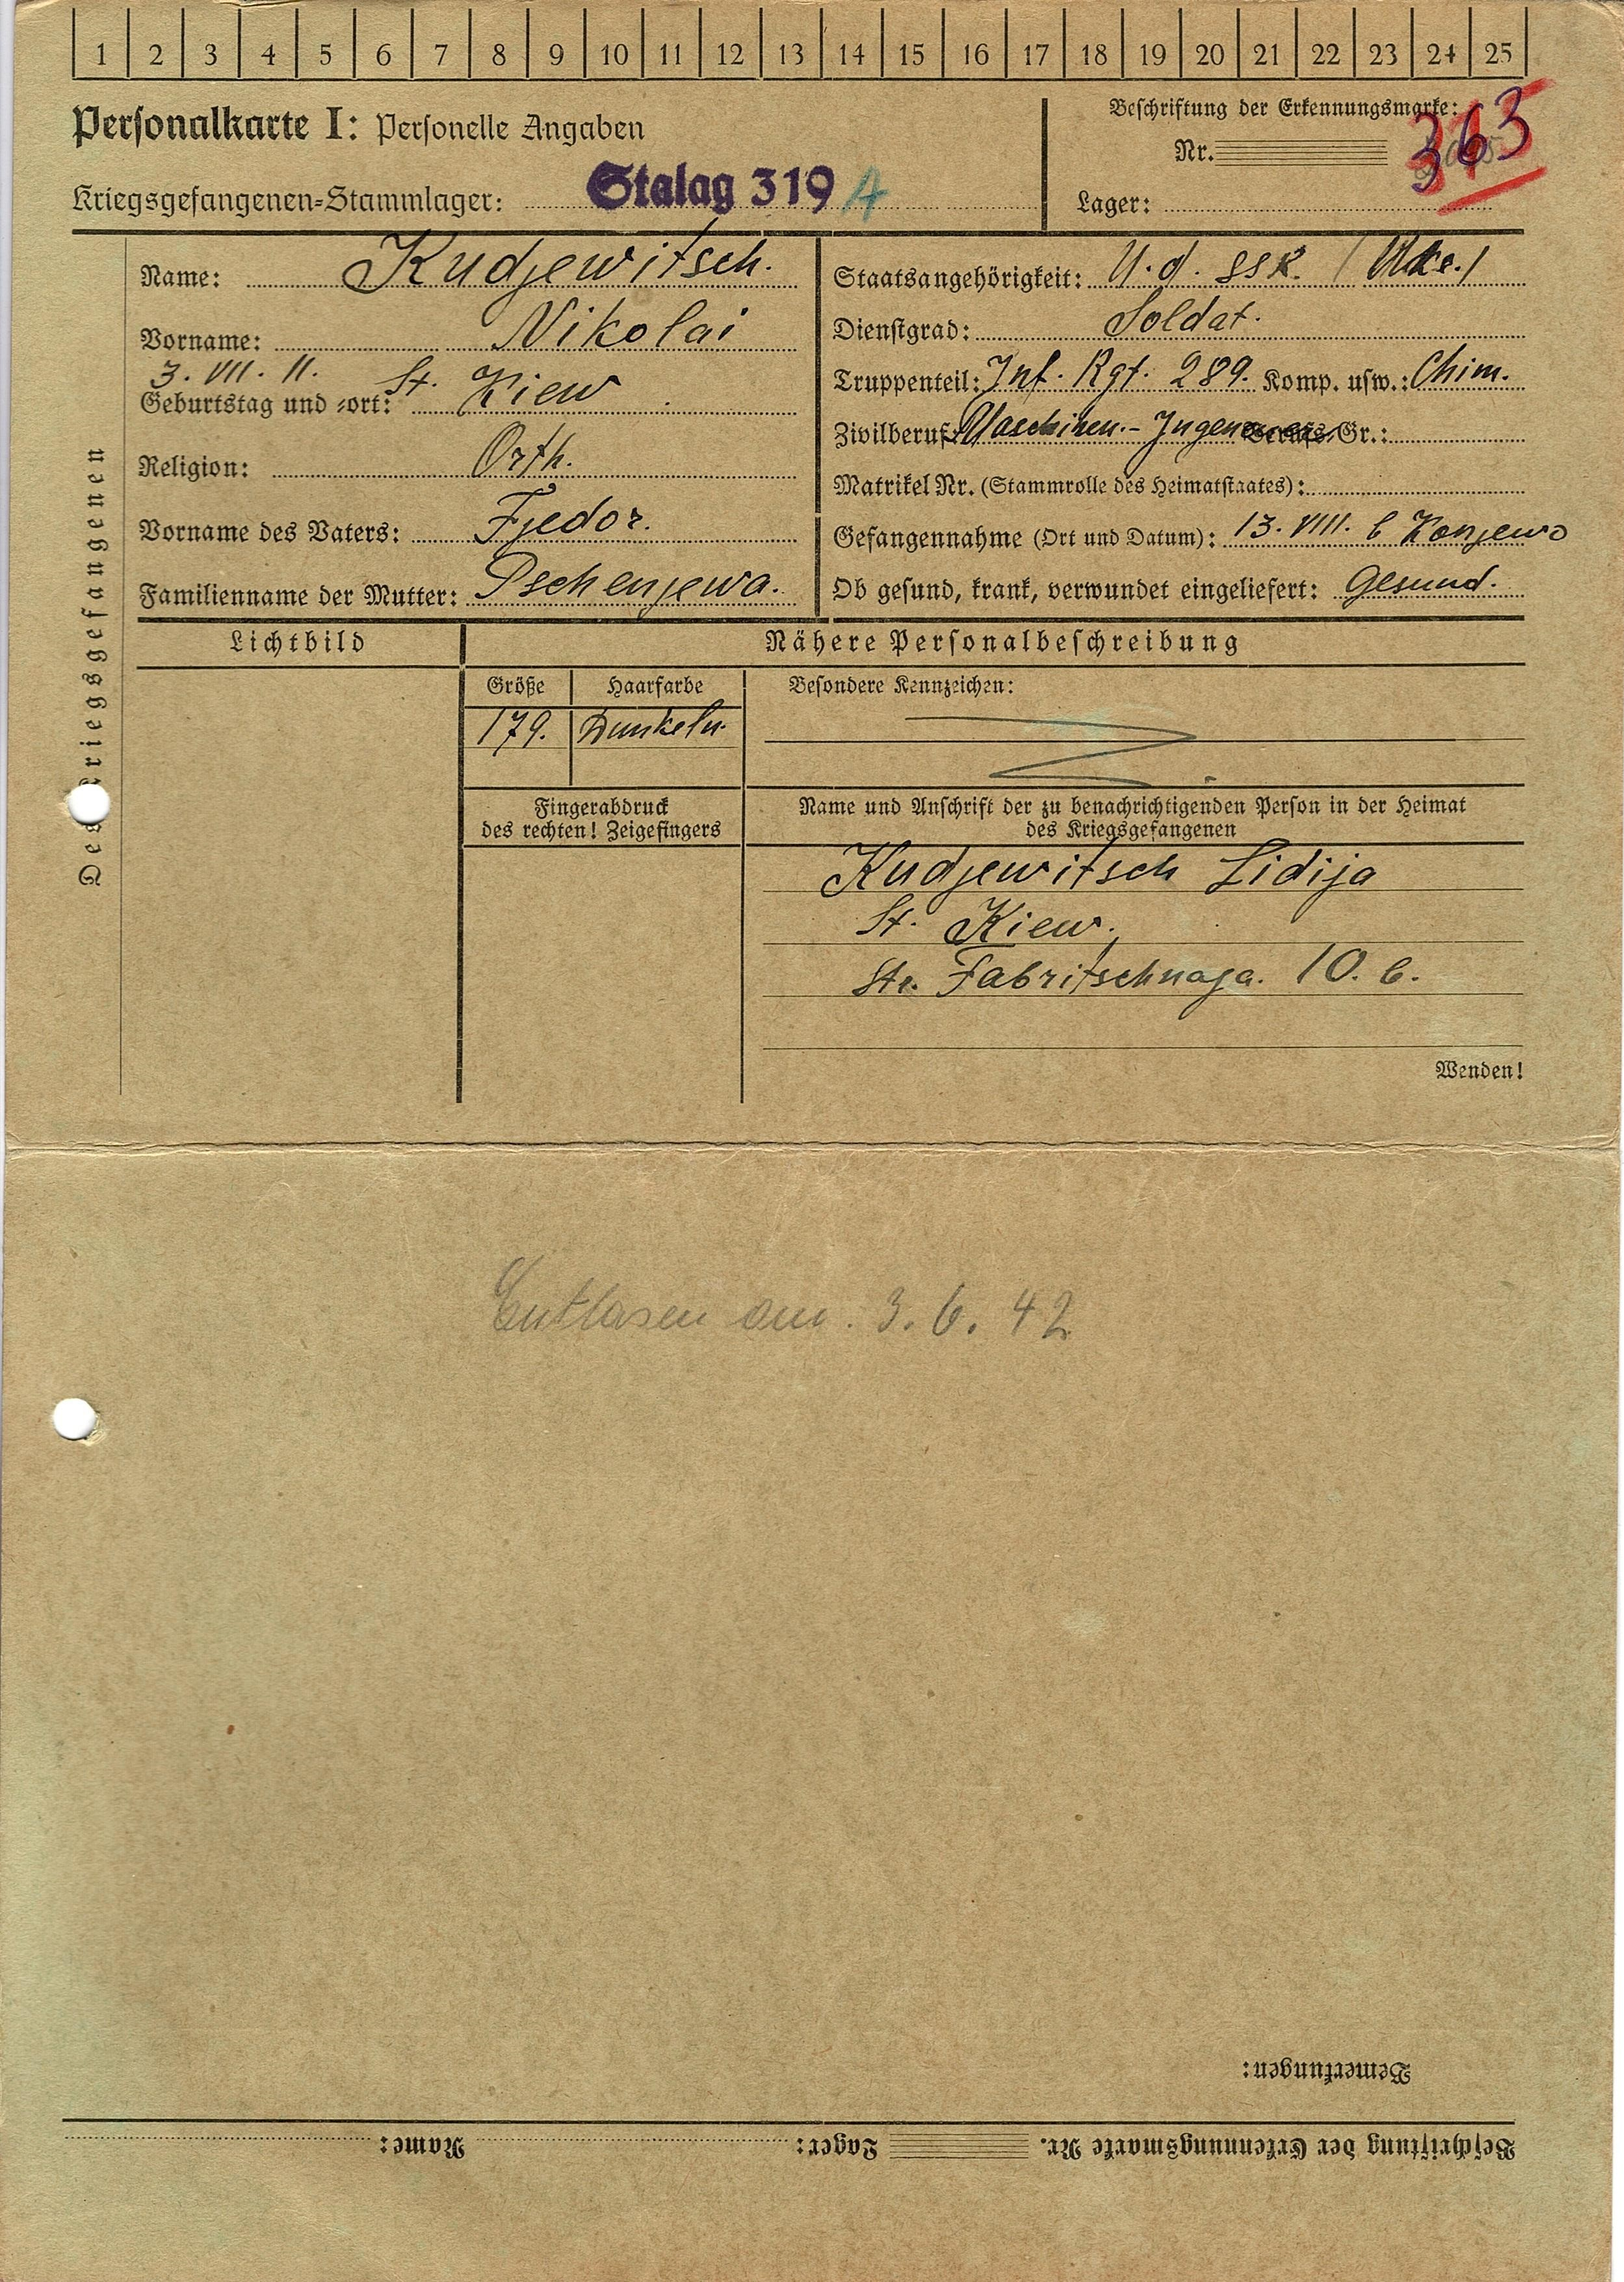 1 2 3 4 5 6 7 8 9 10 11 12 13 14 15 16 17 18 19 20 21 22 23 24 25
Personalkarte I: Personelle Angaben
Beschriftung der Erkennungsmarke:
Nr. 363
Kriegsgefangenen-Stammlager: Stalag 319 A
Lager:
Des Kriegsgefangenen
Name: Kudjewitsch.
Vorname: Nikolai
3. VII. 11. St. Kiew
Geburtstag und -ort:
Religion: Orth.
Vorname des Vaters: Fjedor.
Familienname der Mutter: Pschenjewa.
Staatsangehörigkeit: U.d.SSR. (Ukr.)
Dienstgrad: Soldat.
Truppenteil: Inf. Rgt. 289. Komp. usw.: Chim.
Zivilberuf: Maschinen.- Berufs-Gr.:
Matrikel Nr. (Stammrolle des Heimatstaates):
Gefangennahme (Ort und Datum): 13. VIII. b Konjewo
Ob gesund, krank, verwundet eingeliefert: Gesund.
Lichtbild
Nähere Personalbeschreibung
Größe Haarfarbe Besondere Kennzeichen:
179.
Fingerabdruck
des rechten! Zeigefingers
Name und Anschrift der zu benachrichtigenden Person in der Heimat
des Kriegsgefangenen
Kudjewitsch Lidija
St. Kiew.
Str. Fabritschnaja. 10. b.
Wenden!
Entlasen am. 3.6.42
Bemerkungen:
Beschriftung der Erkennungsmarke Nr. Lager: Name: